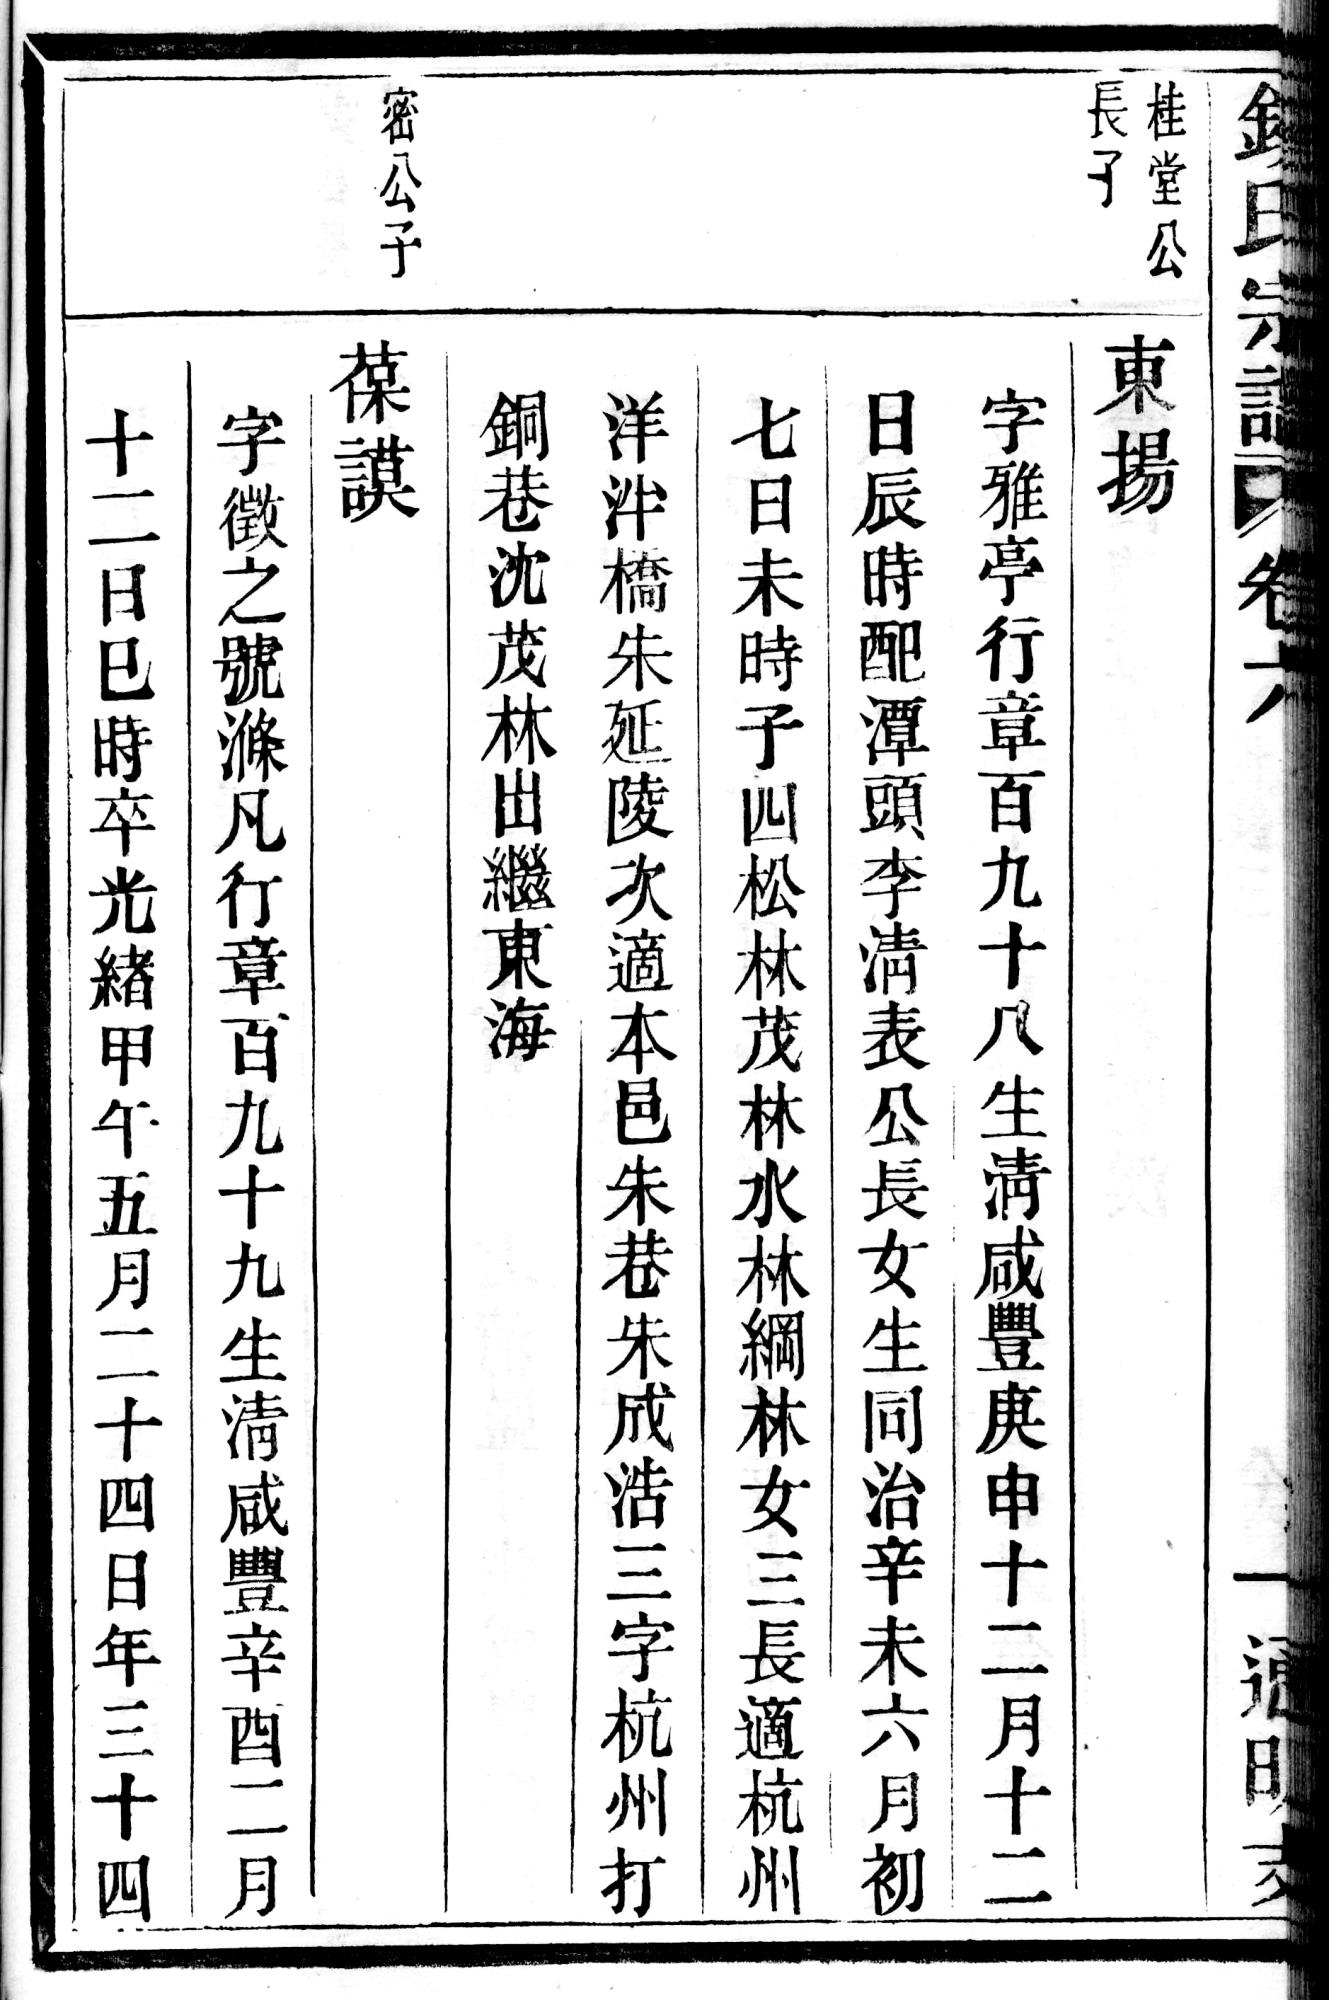 氏宗譜 卷六 一
桂堂公
長子
東揚
字雅亭行章百九十八生淸咸豐庚申十二月十二
日辰時配潭頭李淸表公長女生同治辛未六月初
七日未時子四松林茂林水林綱林女三長適杭州
洋泮橋朱延陵次適本邑朱巷朱成浩三字杭州打
銅巷沈茂林出繼東海
密公子
葆謨
字徵之號滌凡行章百九十九生淸咸豐辛酉二月
十二日巳時卒光緖甲午五月二十四日年三十四